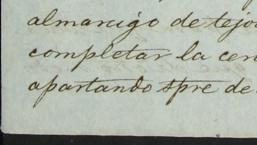 almarcigo de tejo
completar la cen
apartando spre de